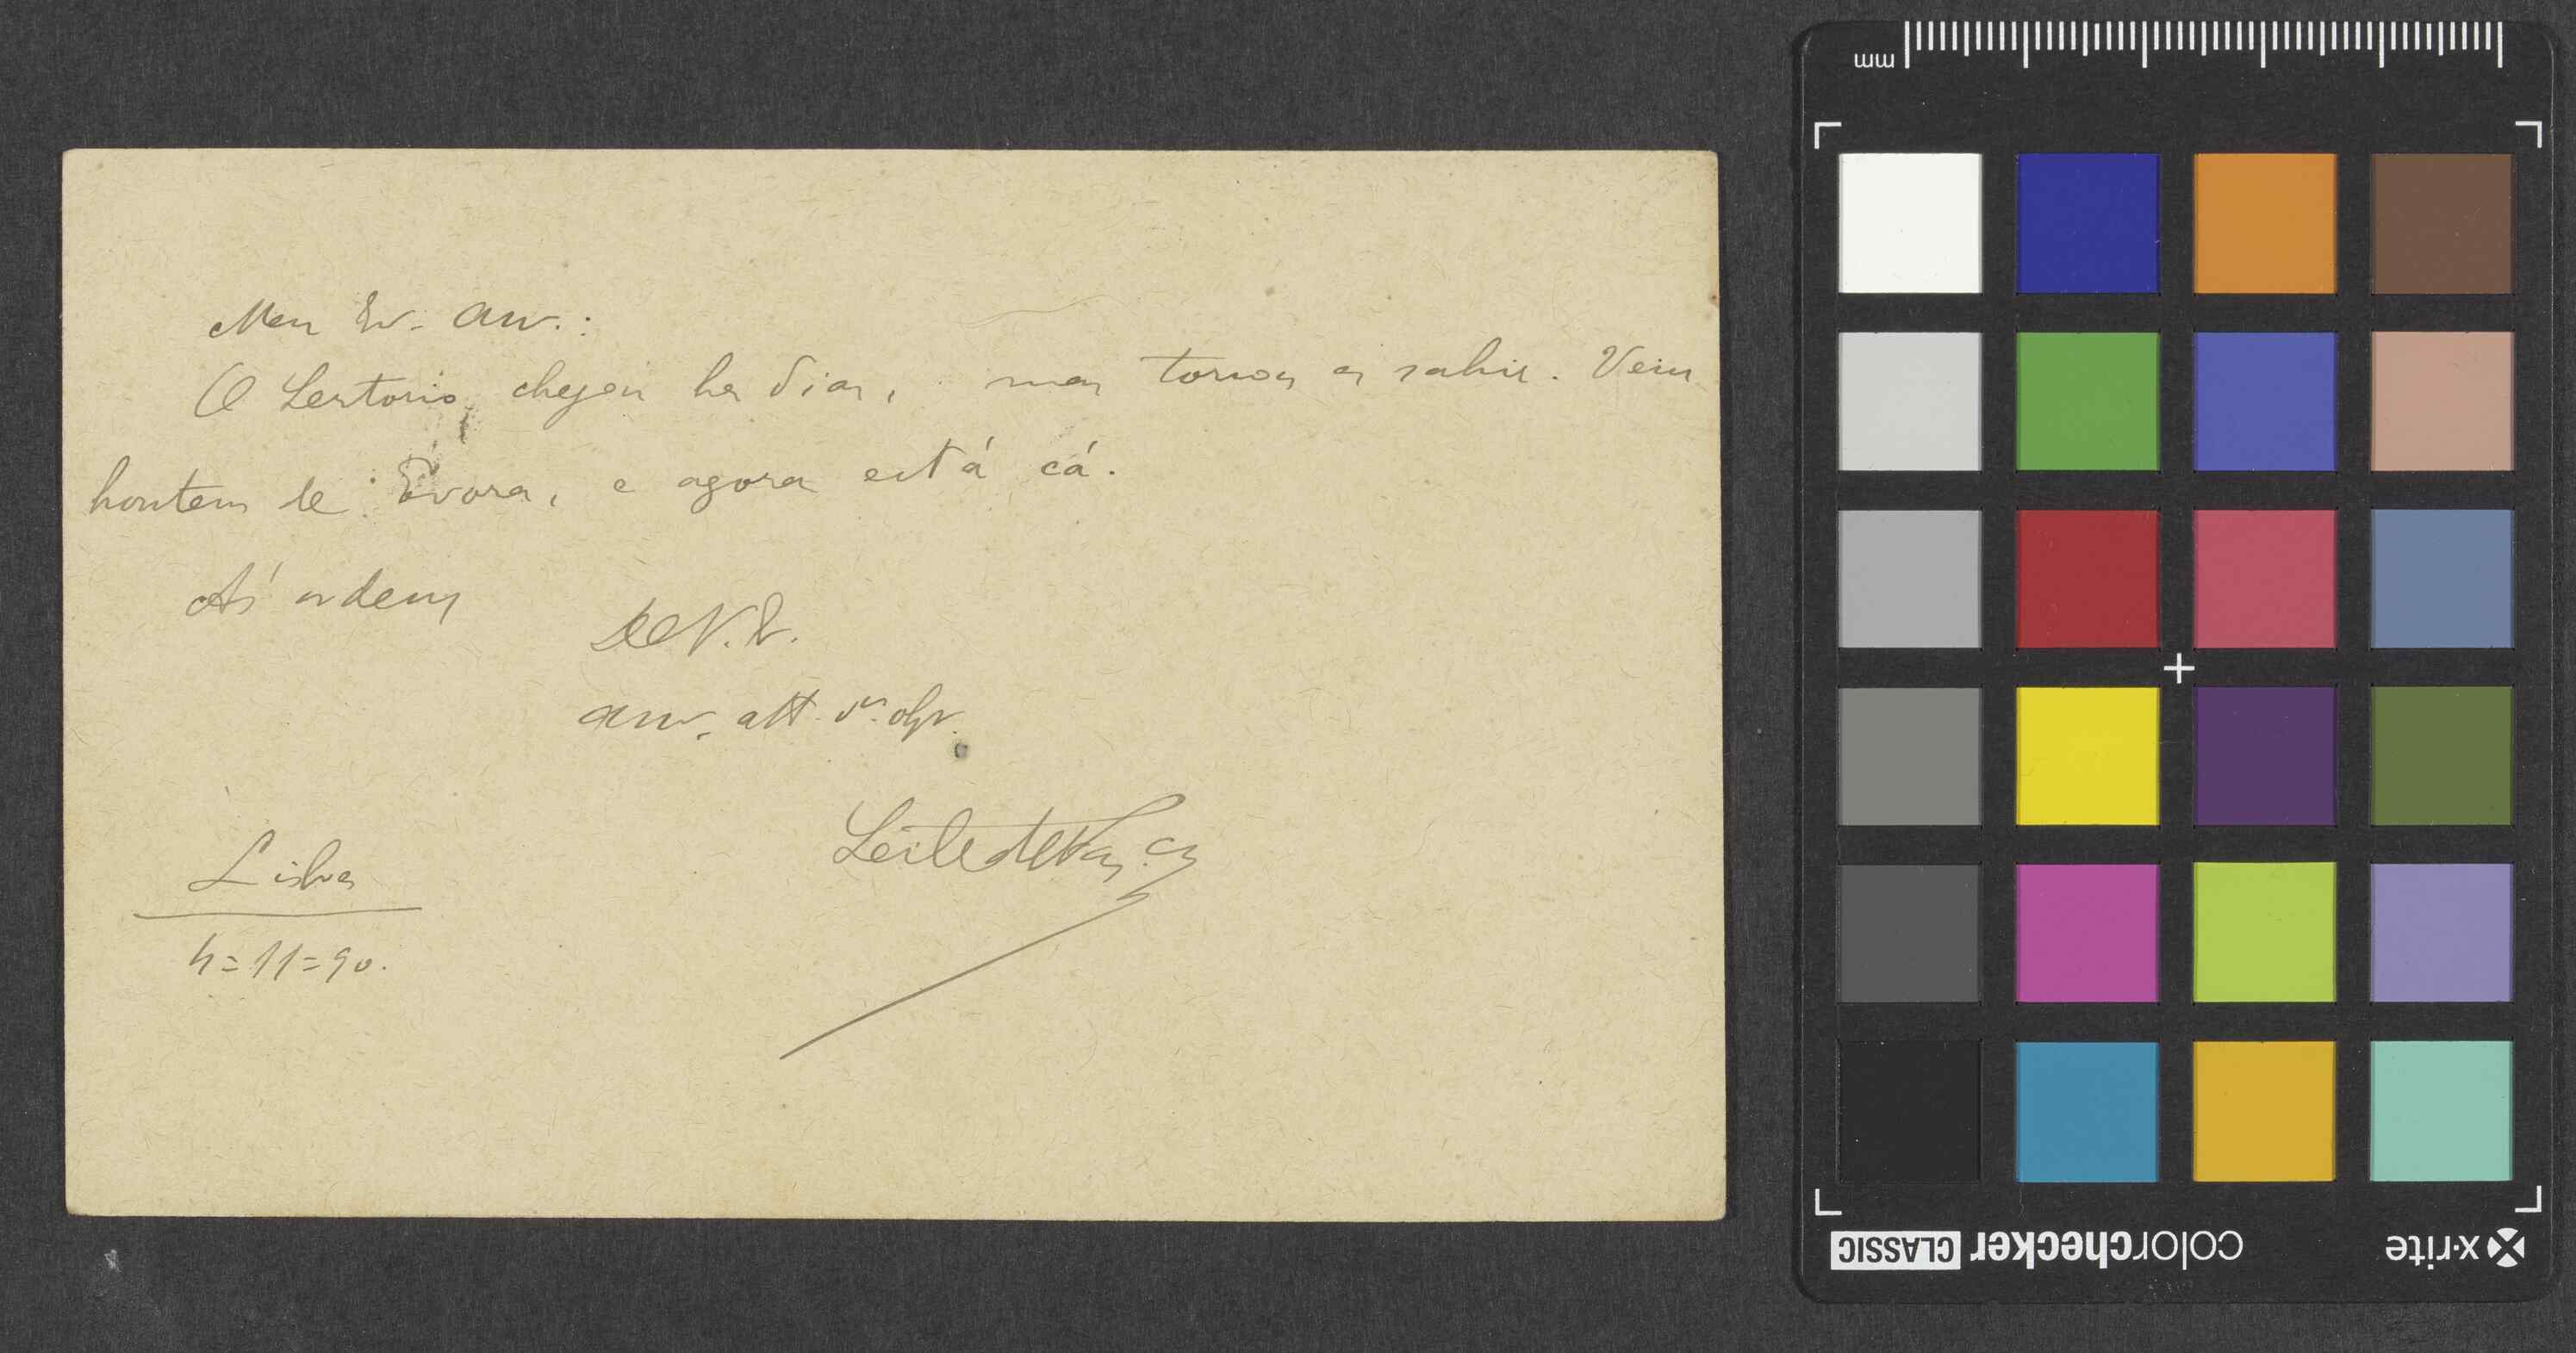 Meu Ex. am.:
O Sertorio chegou ha dias, mas tornou a sahir. Veiu
hontem de Évora, e agora está cá.
Ás ordens
De V. E.
am. att. obr.
Leite de Vas.cos
Lisboa
4=11=90.
mm
colorchecker CLASSIC
x-rite